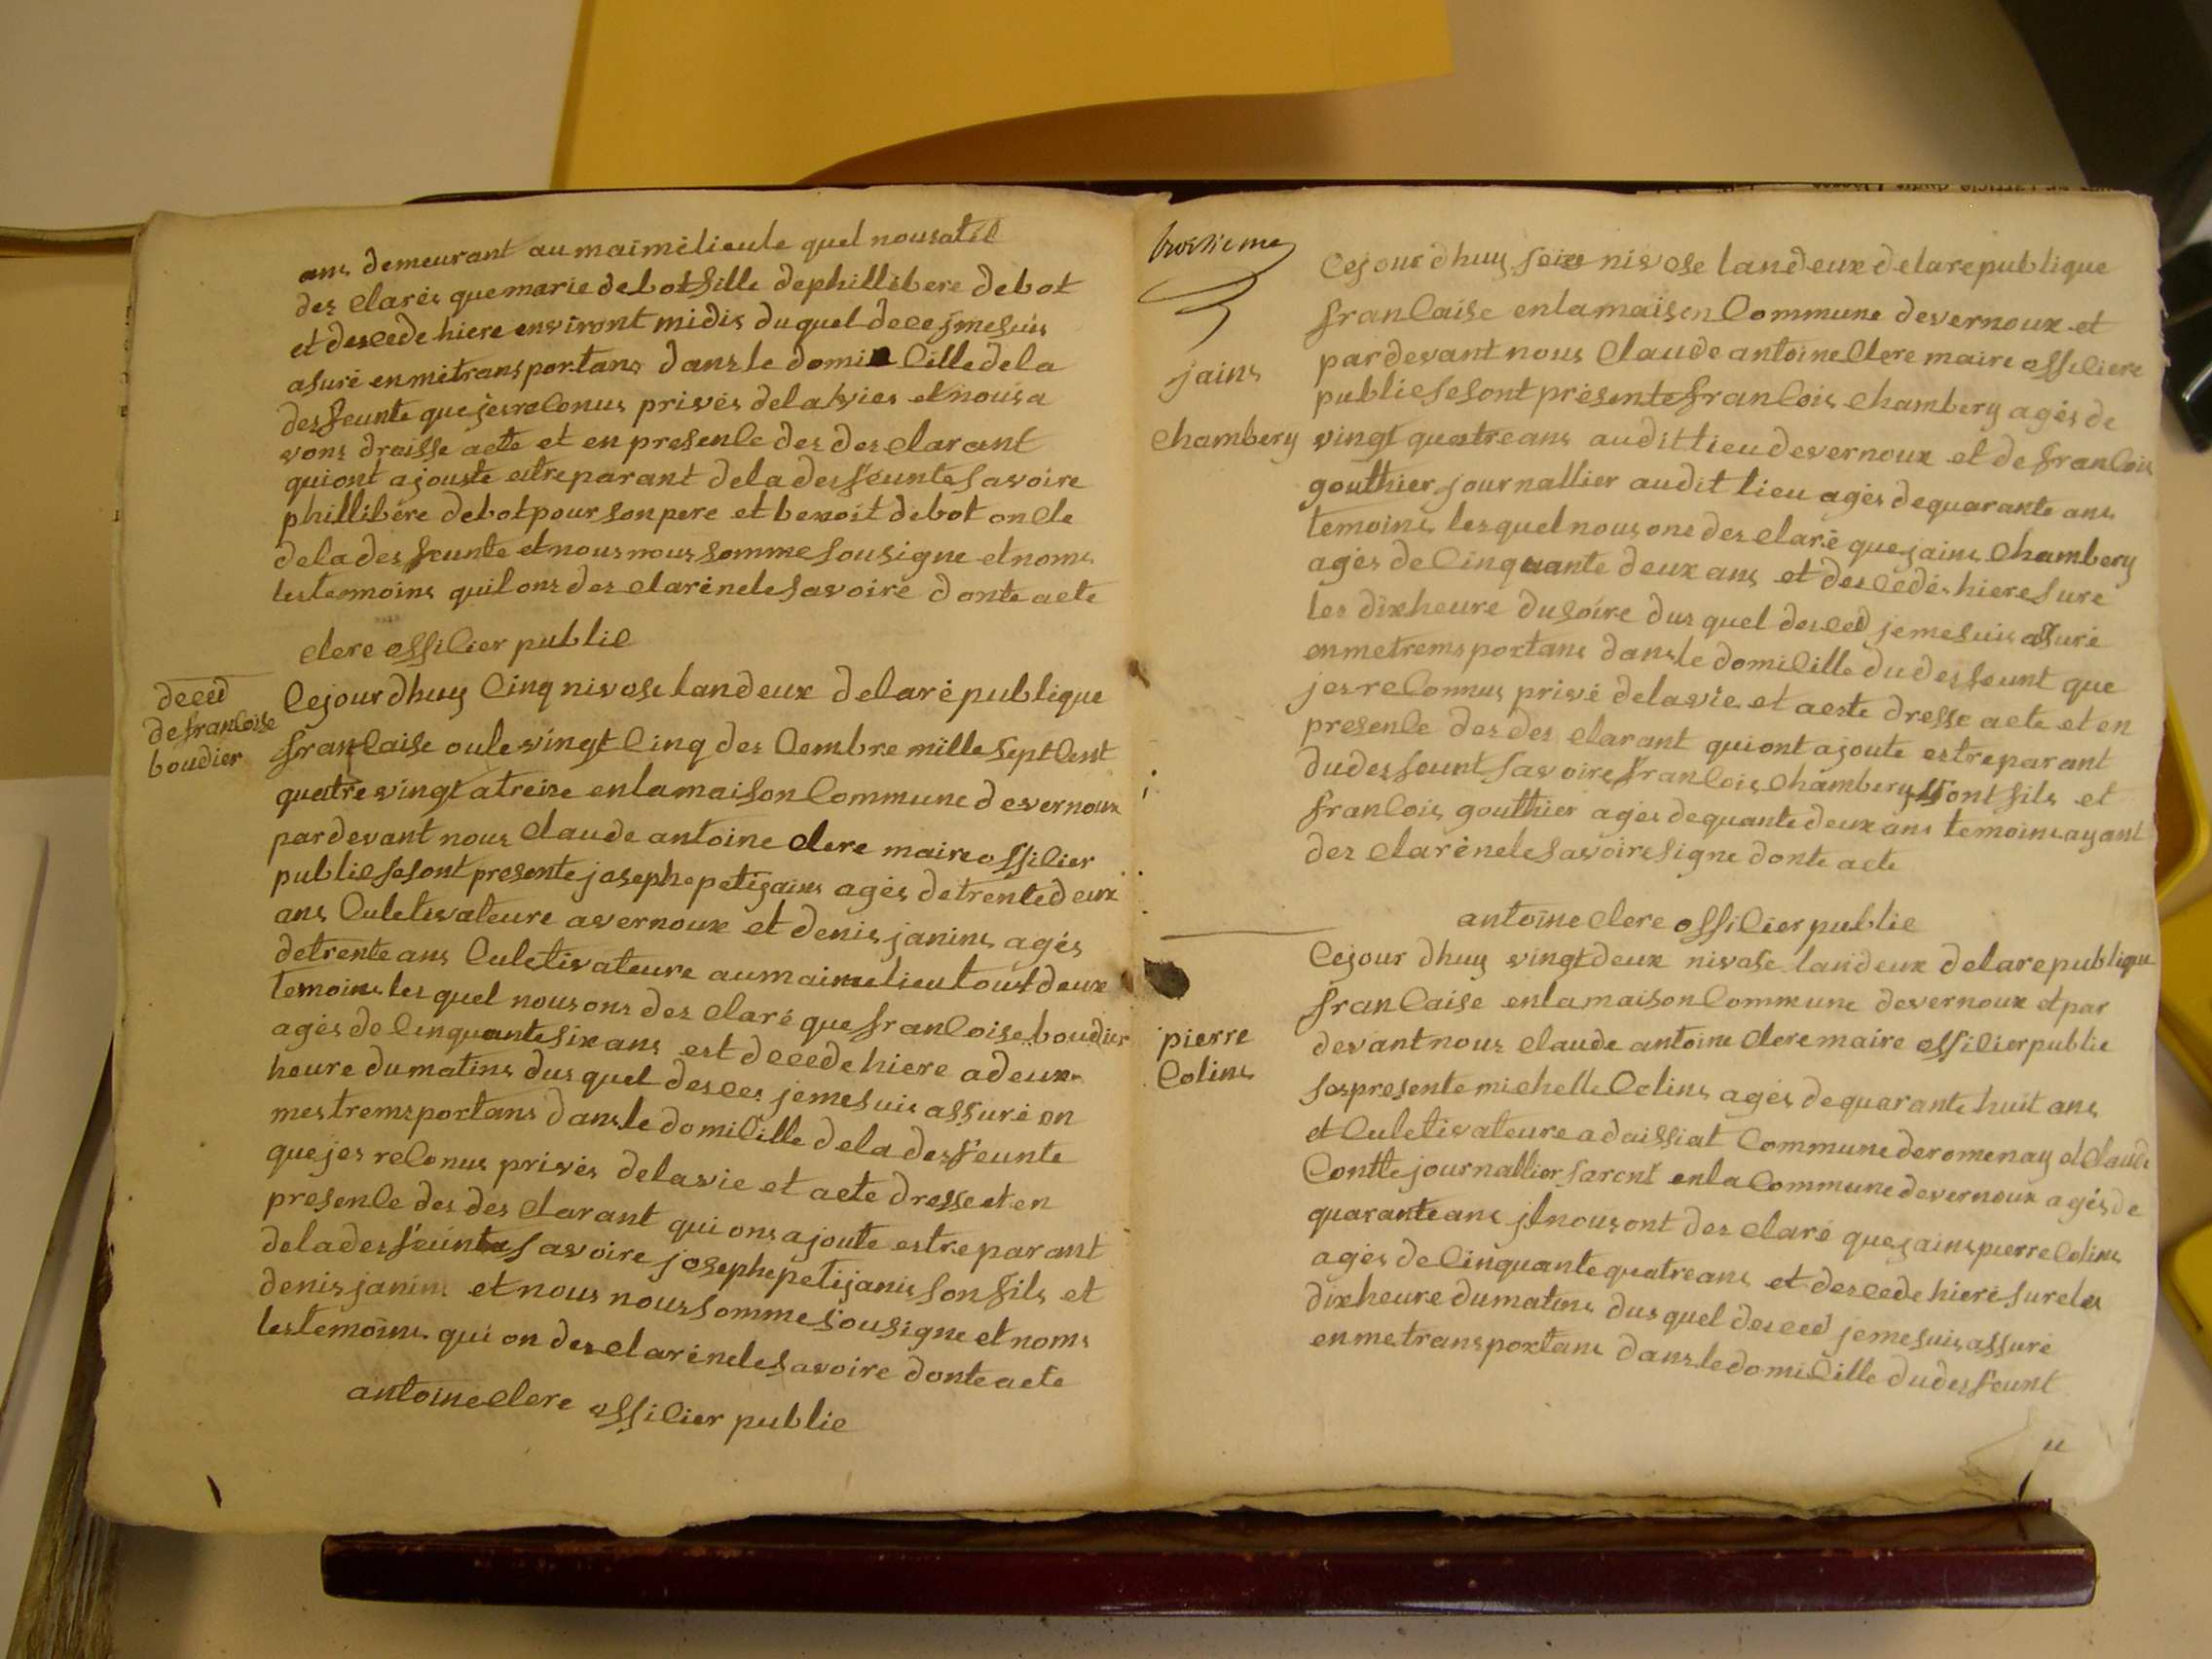 ans demeurant au maimelieule quel nousatil
des clarés que marie debot fille dephillibere debot
et descede hiere environt midis du quel decesjmesuis
asuré enmétransportans dans le domicille dela
desfeunte quejesreconus privés delavies etnousa
vons draisse acte et en presence des desclarant
quiont ajouste estreparant dela desfeunte savoire
phillibére debotpour sonpere et benoit debot oncle
deladesfeunte etnousnous somme sousigne etnoms
lestemoins quilons des clarénelesavoire donte acte
clere officier public
deced
defrancoise
boudier
Cejourdhuy cinq nivose landeux delarépublique
francaise oule vingt cinq des cembre mille sept cent
quatre vingt atreize enlamaison commune devernoux
pardevant nous claude antoine clere maire officier
public sesont presente josephe petijains agés detrentedeux
ans culetivateure avernoux et denis janins agés
detrente ans culetivateure aumaimelieu tous deux
temoins lesquel nousons des claré que francoise boudier
agés de cinquantesixans est decede hiere adeux
heure dumatins dus quel desces jemesuis assuré en
mes tremsportans dansle domicille dela desfeunte
quejes reconus privés delavie et acte dresse et en
presence des des clarant qui ons ajoute estre parant
deladesfeunte savoire josephepetijanis son fils et
denis janins et nous nous somme sousigne et noms
lestemoins qui on des clarénelesavoire donteacte
antoine clere officier public
troisieme
jains
chambery
Cejourdhuy seize nivose landeux delarepublique
francaise enlamaison commune devernoux et
pardevant nous claude antoine clere maire officiere
public sesont présente francois chambery agés de
vingt quatre ans audit lieu devernoux et de francois
gouthier journallier audit lieu agés dequarante ans
temoins lesquel nousons des claré que jains chambery
agés de cinquante deux ans et des cedés hiere sure
les dixheure dusoire dus quel desced jemesuis assuré
enmetremsportans dansle domicille du desfeunt que
jesreconnus privé delavie et aeste dresse acte et en
presence des des clarant quiont ajoute estreparant
dudesfeunt savoire francois chambery sont fils et
francois gouthier agés dequante deux ans temoinsayant
des clarénelesavoiresigne donte acte
antoine clere officier public
pierre
colins
Cejour dhuy vingtdeux nivose landeux delarepublique
francaise enlamaison commune devernoux et par
devant nous claude antoine clere maire officier public
sospresente michelle colins agés dequarante huit ans
et culetivateure adaissiat commune deromenay et claude
contte journallier sarent enla commune devernoux agés de
quaranteans jlnousont des claré quejainspierre colins
agés de cinquantequatreans et des cede hiere sureles
dixheure dumatins dusquel desced jemesuis assuré
enmetransportans dansledomicille dudesfeunt